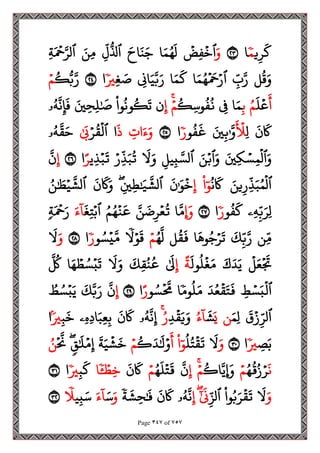 كَرِيمٗا ٢٣ وَٱخۡفِضۡ لَهُمَا جَنَاحَ ٱلذُّلِّ مِنَ ٱلرَّحۡمَةِ
وَقُل رَّبِّ ٱرۡحَمۡهُمَا كَمَا رَبَّيَانِي صَغِيرٗا ٢٤ رَّبُّكُمۡ
أَعۡلَمُ بِمَا فِي نُفُوسِكُمۡۚ إِن تَكُونُواْ صَٰلِحِينَ فَإِنَّهُۥ
كَانَ لِلۡأَوَّٰبِينَ غَفُورٗا ٢٥ وَءَاتِ ذَا ٱلۡقُرۡبَىٰ حَقَّهُۥ
وَٱلۡمِسۡكِينَ وَٱبۡنَ ٱلسَّبِيلِ وَلَا تُبَذِّرۡ تَبۡذِيرًا ٢٦ إِنَّ
ٱلۡمُبَذِّرِينَ كَانُوٓاْ إِخۡوَٰنَ ٱلشَّيَٰطِينِۖ وَكَانَ ٱلشَّيۡطَٰنُ
لِرَبِّهِۦ كَفُورٗا ٢٧ وَإِمَّا تُعۡرِضَنَّ عَنۡهُمُ ٱبۡتِغَآءَ رَحۡمَةٖ
مِّن رَّبِّكَ تَرۡجُوهَا فَقُل لَّهُمۡ قَوۡلٗا مَّيۡسُورٗا ٢٨ وَلَا
تَجۡعَلۡ يَدَكَ مَغۡلُولَةً إِلَىٰ عُنُقِكَ وَلَا تَبۡسُطۡهَا كُلَّ
ٱلۡبَسۡطِ فَتَقۡعُدَ مَلُومٗا مَّحۡسُورًا ٢٩ إِنَّ رَبَّكَ يَبۡسُطُ
ٱلرِّزۡقَ لِمَن يَشَآءُ وَيَقۡدِرُۚ إِنَّهُۥ كَانَ بِعِبَادِهِۦ خَبِيرَۢا
بَصِيرٗا ٣٠ وَلَا تَقۡتُلُوٓاْ أَوۡلَٰدَكُمۡ خَشۡيَةَ إِمۡلَٰقٖۖ نَّحۡنُ
نَرۡزُقُهُمۡ وَإِيَّاكُمۡۚ إِنَّ قَتۡلَهُمۡ كَانَ خِطۡـٔٗا كَبِيرٗا ٣١
وَلَا تَقۡرَبُواْ ٱلزِّنَىٰٓۖ إِنَّهُۥ كَانَ فَٰحِشَةٗ وَسَآءَ سَبِيلٗا ٣٢
Page ٣٤٧ of ٧٥٧